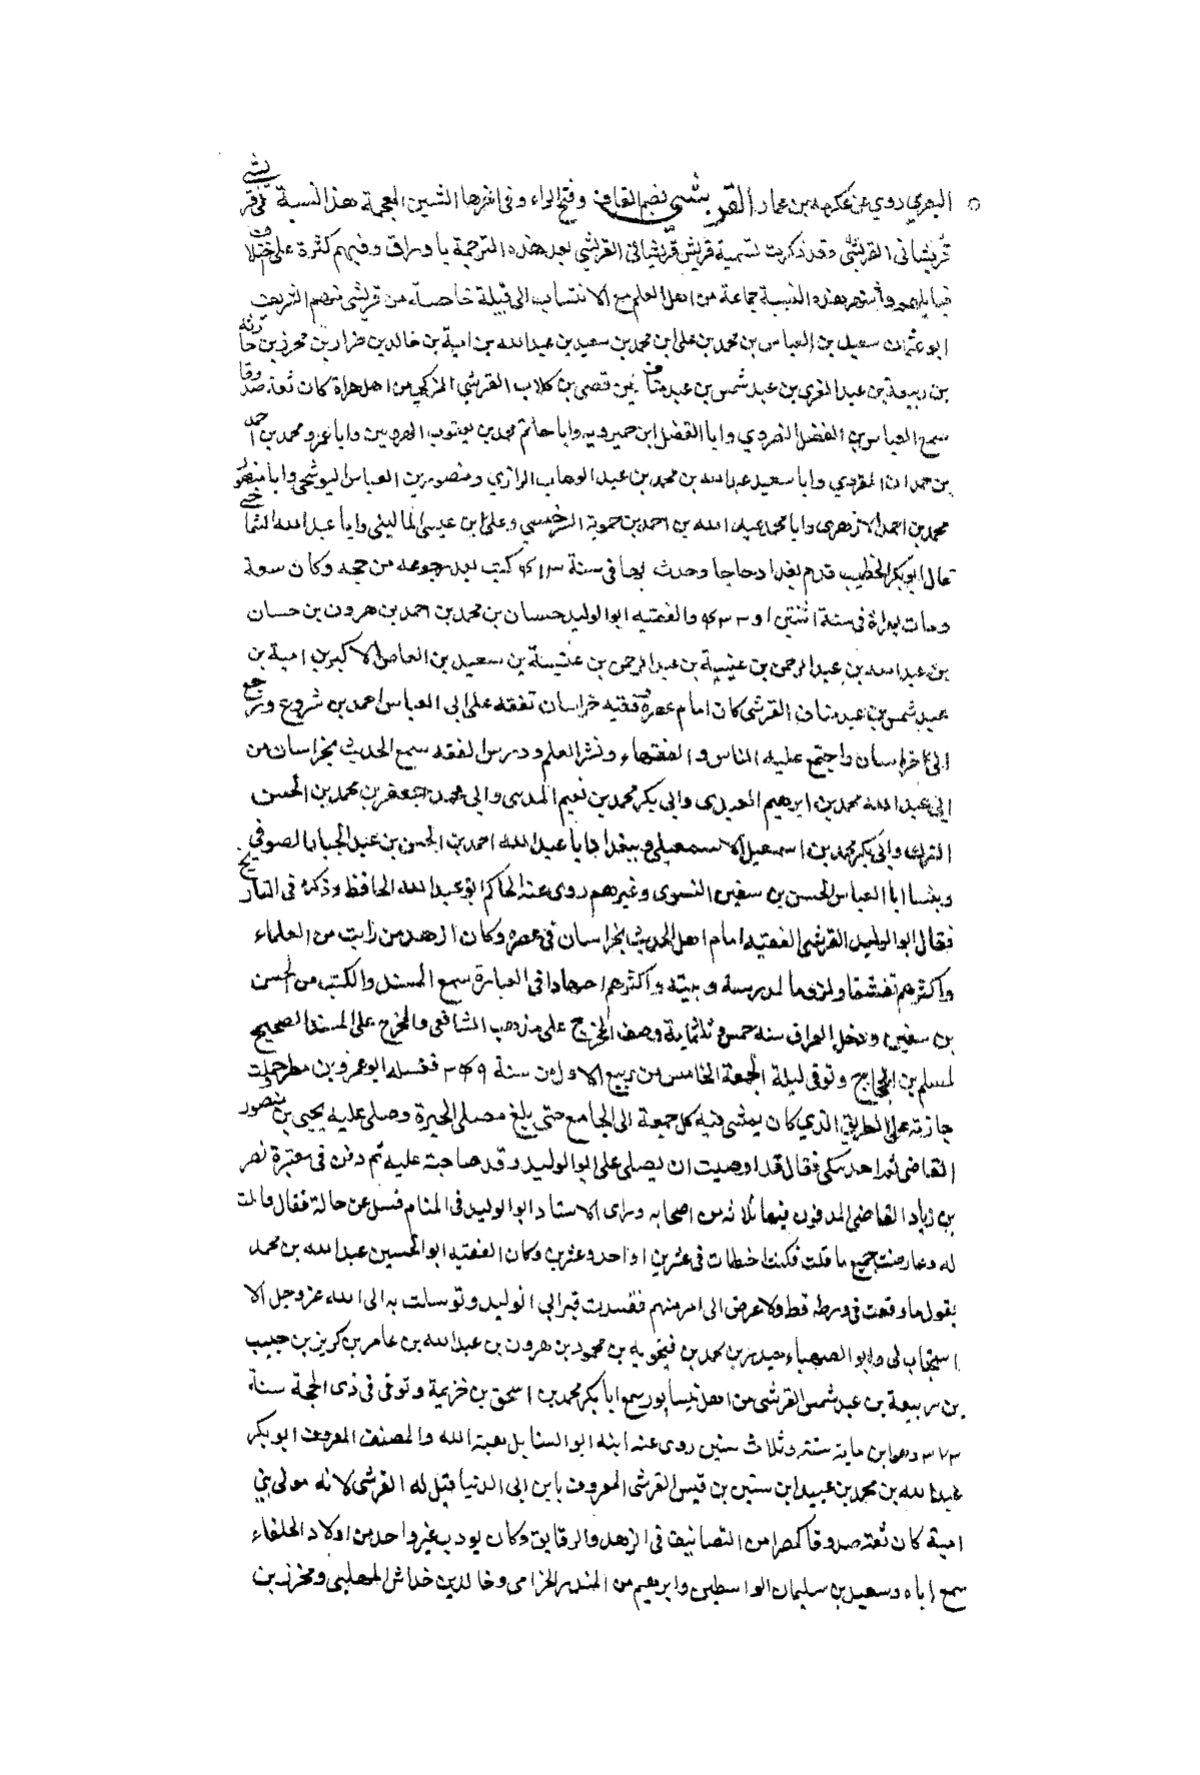 البصري روي عن عكرمه بن عمار القريشي بضم القاف وفتح الراء وفي اخرها الشين المعجمة هذ النسبة الى قريشي
قريشاني القريشي وقد ذكرت لتسمية قريش قريشاني القريشي بعد هذه الترجمة باوراق وفيهم كثرة على اختلاف
قبايلهم واشتهر بهذه النسبة جماعة من اهل العلم مع الانتساب الى قبيلة خاصة من قريش منهم الشريف
ابو عثمان سعيد بن العباس بن محمد بن على ابن محمد بن سعيد بن عبد الله بن امية بن خالد بن حزار بن محرز بن حارثه
بن ربيعة بن عبد العزى بن عبد شمس بن عبد مناف بن قصى بن كلاب القرشي المزكي من اهل هراة كان ثقة صدوقا
سمع العباس بن الفضل النضروي وابا الفضل ابن حميرويه وابا حاتم محمد بن يعقوب الهرويين وابا عمرو محمد بن احمد
بن حمدان المقري وابا سعيد عبد الله بن محمد بن عبد الوهاب الرازي ومنصور بن العباس البوشنجي وابا منصور
محمد بن احمد الازهرى وابا محمد عبد الله بن احمد بن حموية السرخسي وعلى بن عيسى الماليني وابا عبد الله الشماخي
قال ابو بكر الخطيب قدم بغداد حاجا وحدث بها في سنة ٤١٣ كتب بعد رجوعه من حجه وكان سمعة
ومات بهراة في سنة اثنتين او ٤٣٣ والفقيه ابو الوليد حسان بن محمد بن احمد بن هرون بن حسان
بن عبد الله بن عبد الرحمن بن عنبسة بن عبد الرحمن بن عنبسة بن سعيد بن العاص الاكبر بن امية بن
عبد شمس بن عبد مناف القرشى كان امام عصره فقيه خراسان تفقه على ابى العباس احمد بن شروع ورجع
الى خراسان واجتمع عليه الناس والفقهاء ونشر العلم ودرس الفقه سمع الحديث بخراسان من
ابي عبد الله محمد بن ابرهيم العبدى وابي بكر محمد بن نعيم المدسى وابي محمد جعفر بن محمد بن الحسن
وابي بكر محمد بن اسمعيل الاسمعيلى وببغداد ابا عبد الله احمد بن الحسن بن عبد الجبار الصوفي
وبنسا ابا العباس الحسن بن سفين النسوى وغيرهم روى عنه الحاكم ابو عبد الله الحافظ وذكره في التاريخ
فقال ابو الوليد القرشى الفقيه امام اهل الحديث بخراسان في عصره وكان ازهد من رايت من العلماء
واكثرهم تقشفا ولزوما لمدرسة وبيته واكثرهم اجهادا في العبارة سمع المسند والكتب من الحسن
بن سفين ودخل العراق سنه خمس وثلثماية وصف المخرج على مذهب الشافعى والمخرج على المسند الصحيح
لمسلم بن الحجاج وتوفى ليلة الجمعة الخامس من ربيع الاول من سنة ٣٤٩ فغسله ابو عمرو بن مطر حملت
جنازته على الطريق الذي كان يمشى فيه كل جمعة الى الجامع حتى بلغ مصلى الحيرة وصلى عليه يحيى بن منصور
القاضى فقال قد اوصيت ان يصلى على ابو الوليد وقد صاحبته عليه ثم دفن في مقبرة نصر
بن زياد القاضى المدفون فيها ثلاثه من اصحابه وراى الاستاد ابو الوليد في المنام فسئل عن حالة فقال قابلت
له وعارضت جميع ما قلت فكنت اخطات في عشرين او احد وعشرين وكان الفقيه ابو الحسين عبد الله بن محمد
يقول ما وقعت في ورطه قط ولا عرض الى امر منهم فقصدت قبر ابي الوليد وتوسلت به الى الله عز وجل الا
استجاب لى وابو الصهباء معبد بن محمد بن فيخويه بن محمود بن هرون بن عبد الله بن عامر بن كريز بن حبيب
بن ربيعة بن عبد شمس القرشى من اهل نيسابور سمع ابا بكر محمد بن اسحق بن خزيمة وتوفى في ذى الحجة سنة
٣٧٣ وهو ابن ماية سنة وثلاث سنين روى عنه ابنه ابو السنابل هبة الله والمصنف المعروف ابو بكر
عبد الله بن محمد بن عبيد ابن سفين بن قيس القرشى المعروف بابن ابى الدنيا قيل له القرشى لانه مولى بني
امية كان ثقة صدوقا مكثرا من التصانيف في الزهد والرقايق وكان يودب غير واحد من اولاد الخلفاء
سمع اباه وسعيد بن سليمان الواسطى وابرهيم من المنذر الحزامى وخالد بن خداش المهلبى ومحرز بن